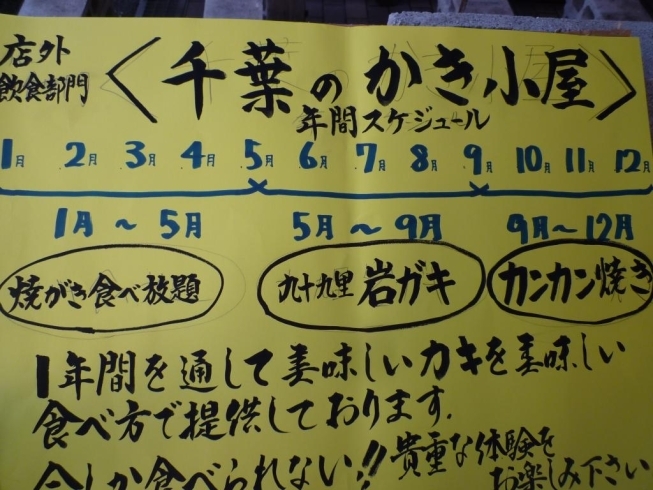 店外
飲食部門
〈千葉のかき小屋〉
年間スケジュール
1月 2月 3月 4月 5月 6月 7月 8月 9月 10月 11月 12月
1月～5月 5月～9月 9月～12月
焼がき食べ放題 九十九里岩ガキ カンカン焼き
1年間を通して美味しいカキを美味しい
食べ方で提供しております.
今しか食べられない!!貴重な体験を
お楽しみ下さい